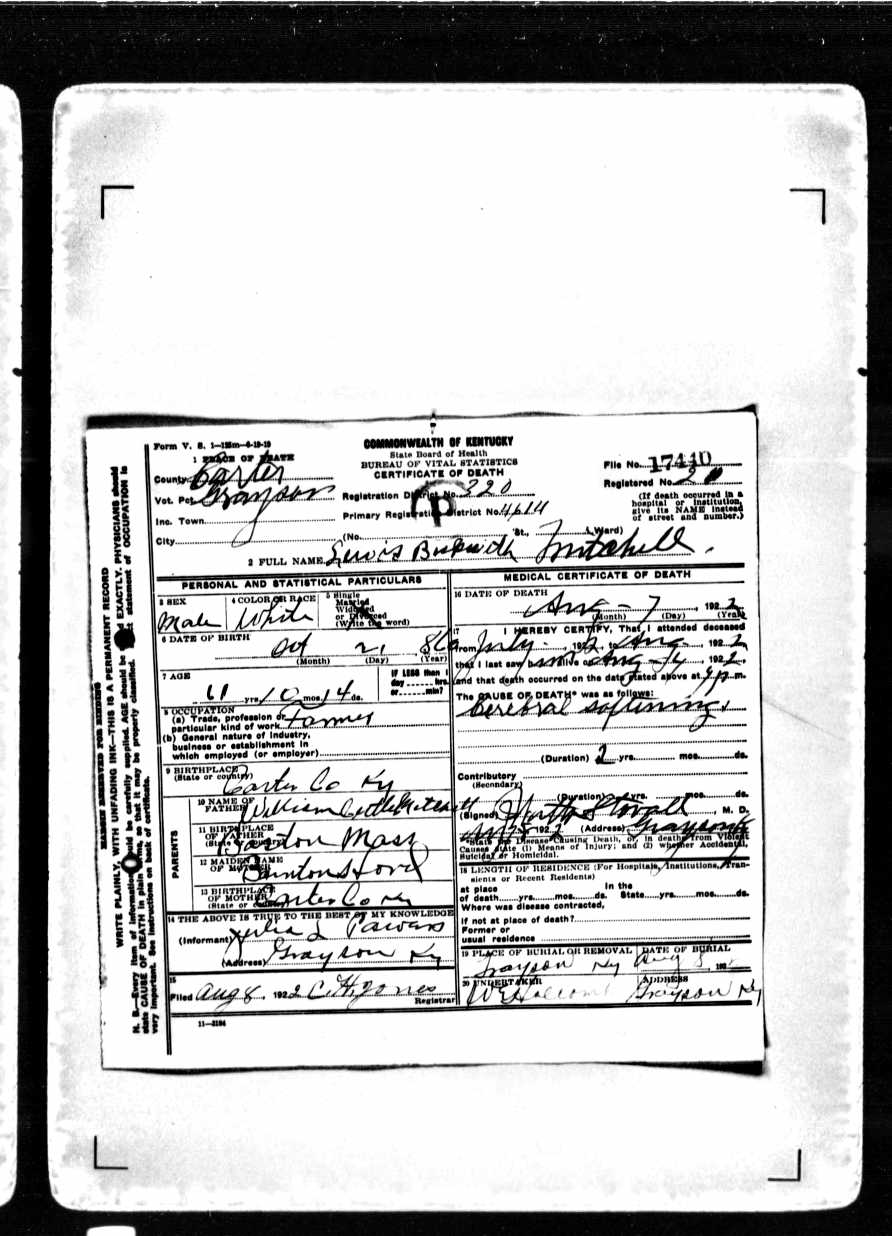 Form V. S. 1—125m—6-19-19
COMMONWEALTH OF KENTUCKY
State Board of Health
BUREAU OF VITAL STATISTICS
CERTIFICATE OF DEATH
1 PLACE OF DEATH
County Carter
Vot. Pct. Grayson
Inc. Town
City
Registration District No. 320
Primary Registration District No.
(No. St., Ward)
File No. 17440
Registered No. 20
(If death occurred in a
hospital or institution,
give its NAME instead
of street and number.)
2 FULL NAME Lewis Mitchell
PERSONAL AND STATISTICAL PARTICULARS
3 SEX
Male
4 COLOR OR RACE
White
5 Single
Married
Widowed
or Divorced
(Write the word)
6 DATE OF BIRTH
Oct 21 860
(Month) (Day) (Year)
7 AGE
61 yrs. 10 mos. 14 ds.
IF LESS than 1
day hrs.
or min?
8 OCCUPATION
(a) Trade, profession or
particular kind of work Farmer
(b) General nature of industry,
business or establishment in
which employed (or employer)
9 BIRTHPLACE
(State or country)
Carter Co Ky
PARENTS
10 NAME OF
FATHER
William Mitchell
11 BIRTHPLACE
OF FATHER
(State or country)
Mass
12 MAIDEN NAME
OF MOTHER
13 BIRTHPLACE
OF MOTHER
(State or country)
Carter Co Ky
14 THE ABOVE IS TRUE TO THE BEST OF MY KNOWLEDGE
(Informant) Julia L
(Address) Grayson Ky
15
Filed Aug 8 1922 Jones
Registrar
11—3184
MEDICAL CERTIFICATE OF DEATH
16 DATE OF DEATH
Aug - 7, 1922
(Month) (Day) (Year)
17 I HEREBY CERTIFY, That I attended deceased
from July, 1922, to Aug, 1922
that I last saw him alive on Aug, 1922,
and that death occurred on the date stated above at p.m.
The CAUSE OF DEATH* was as follows:
Cerebral softening.
(Duration) 2 yrs. mos. ds.
Contributory
(Secondary)
(Duration) yrs. mos. ds.
(Signed) Stovall M. D.
192 (Address) Grayson Ky
*State the Disease Causing Death, or, in deaths from Violent
Causes state (1) Means of Injury; and (2) whether Accidental,
Suicidal or Homicidal.
18 LENGTH OF RESIDENCE (For Hospitals, Institutions, Tran-
sients or Recent Residents)
At place In the
of death yrs. mos. ds. State yrs. mos. ds.
Where was disease contracted,
if not at place of death?
Former or
usual residence
19 PLACE OF BURIAL OR REMOVAL
Grayson Ky
DATE OF BURIAL
Aug 8 192
20 UNDERTAKER
ADDRESS
Grayson Ky
MARGIN RESERVED FOR BINDING
WRITE PLAINLY, WITH UNFADING INK—THIS IS A PERMANENT RECORD
N. B.—Every item of information should be carefully supplied. AGE should be EXACTLY. PHYSICIANS should
state CAUSE OF DEATH in plain terms, so that it may be properly classified. statement of OCCUPATION is
very important. See instructions on back of certificate.